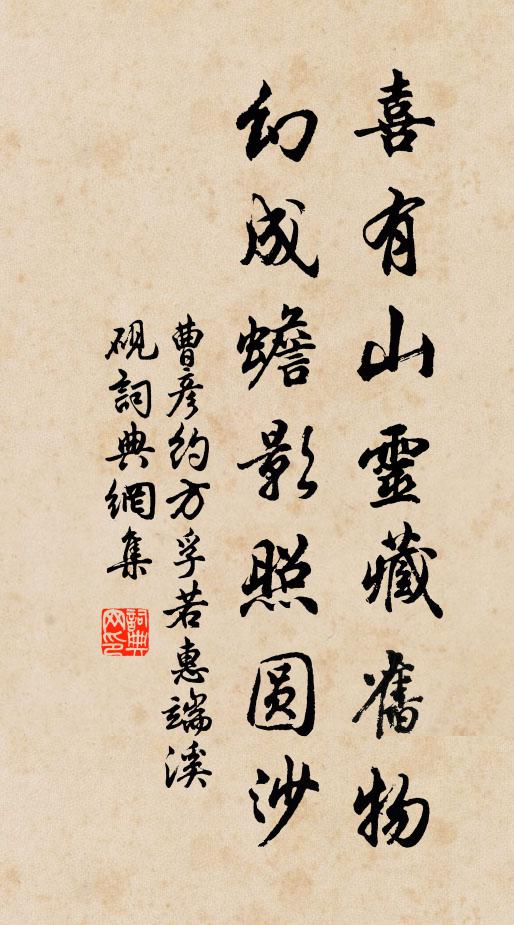 喜有山靈藏舊物
幻成蟾影照圆沙
曹彦约方孚若惠端溪
砚詞典網集
詞典网印